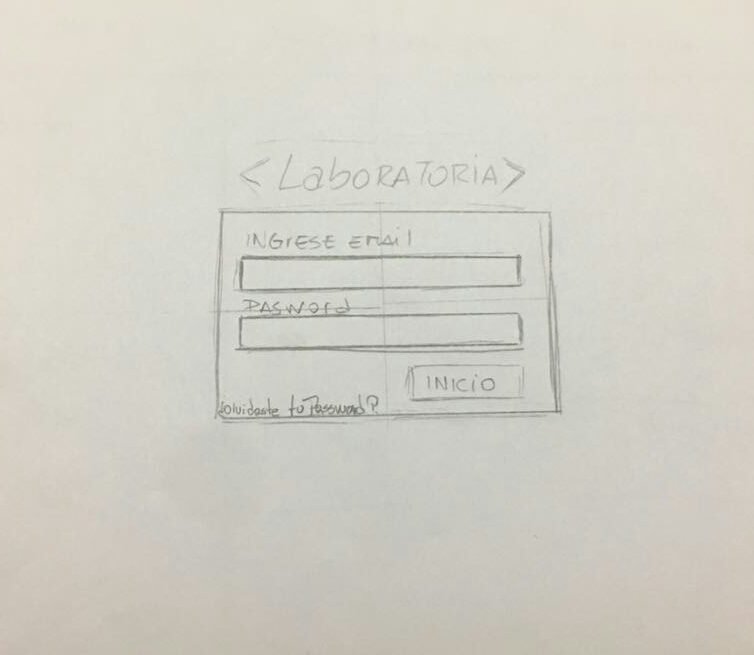 <LaboRATORiA>
INGRESE EMAil
PASWord
INICIO
olvidaste tu Password?